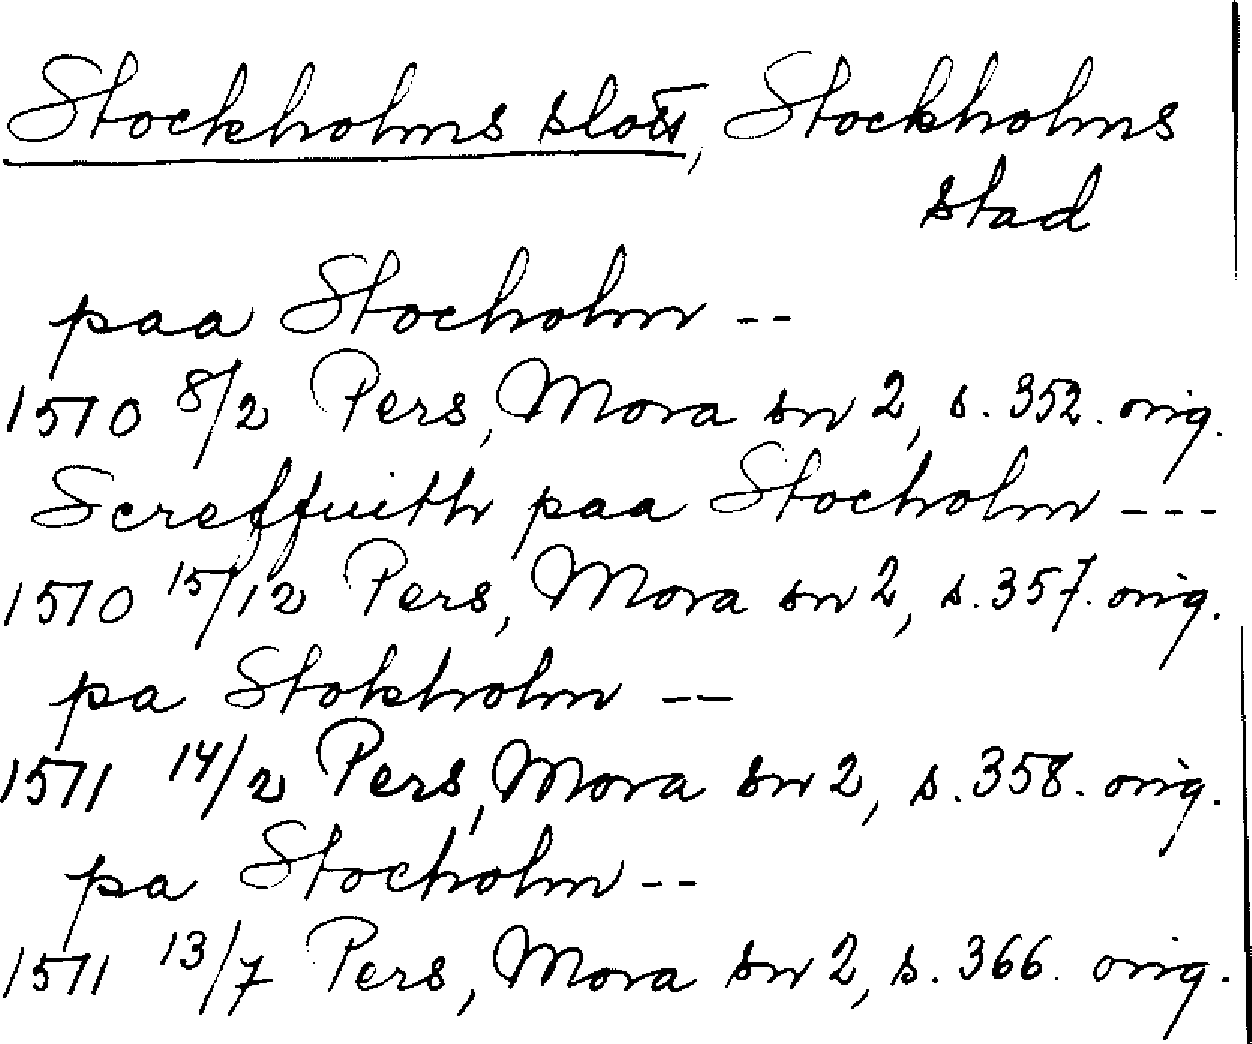 Stockholms slott, Stockholms
stad
paa Stocholm --
1570 8/2 Pers, Mora sn 2, s. 352. orig.
Screffuith paa Stocholm ---
1570 15/12 Pers, Mora sn 2, s. 357. orig.
pa Stokholm --
1571 14/2 Pers, Mora sn 2, s. 358. orig.
pa Stocholm --
1571 13/7 Pers, Mora sn 2, s. 366. orig.